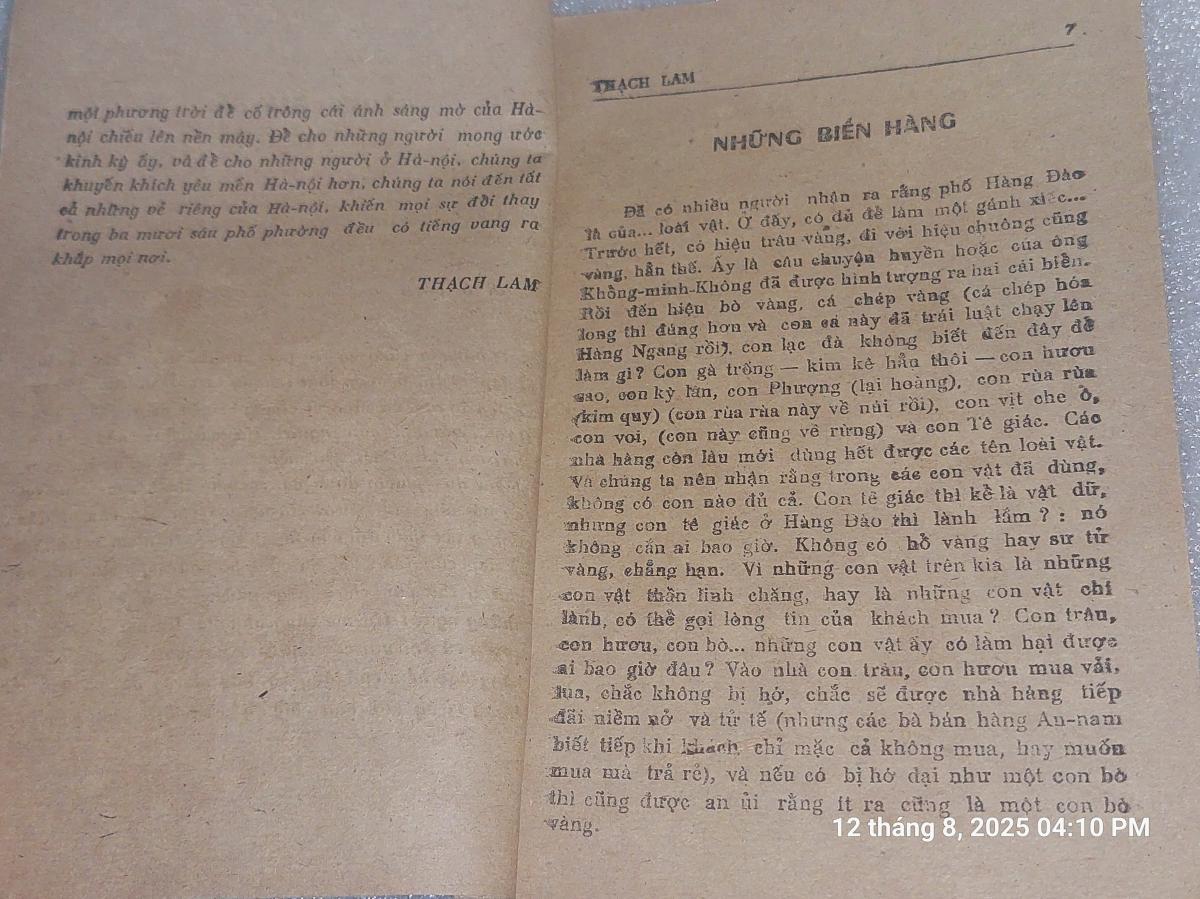 một phương trời để cố trông cái ánh sáng mờ của Hà-
nội chiếu lên nền mây. Để cho những người mong ước
kinh kỳ ấy, và để cho những người ở Hà-nội, chúng ta
khuyến khích yêu mến Hà-nội hơn, chúng ta nói đến tất
cả những vẻ riêng của Hà-nội, khiến mọi sự đổi thay
trong ba mươi sáu phố phường đều có tiếng vang ra
khắp mọi nơi.
THẠCH LAM
7
THẠCH LAM
NHỮNG BIỂN HÀNG
Đã có nhiều người nhận ra rằng phố Hàng Đào
là của... loài vật. Ở đấy, có đủ để làm một gánh xiếc...
Trước hết, có hiệu trâu vàng, đi với hiệu chuông cũng
vàng, hẳn thế. Ấy là câu chuyện huyền hoặc của ông
Khổng-minh-Không đã được hình tượng ra hai cái biển.
Rồi đến hiệu bò vàng, cá chép vàng (cá chép hóa
long thì đúng hơn và con cá này đã trái luật chạy lên
Hàng Ngang rồi), con lạc đà không biết đến đây để
làm gì? Con gà trống — kim kê hẳn thôi — con hươu
sao, con kỳ lân, con Phượng (lại hoàng), con rùa rùa
(kim quy) (con rùa rùa này về núi rồi), con vịt che ô,
con voi, (con này cũng về rừng) và con Tê giác. Các
nhà hàng còn lâu mới dùng hết được các tên loài vật.
Và chúng ta nên nhận rằng trong các con vật đã dùng,
không có con nào dủ cả. Con tê giác thì kể là vật dữ,
nhưng con tê giác ở Hàng Đào thì lành lắm ? : nó
không cắn ai bao giờ. Không có hổ vàng hay sư tử
vàng, chẳng hạn. Vì những con vật trên kia là những
con vật thần linh chăng, hay là những con vật chí
lành, có thể gọi lòng tin của khách mua ? Con trâu,
con hươu, con bò... những con vật ấy có làm hại được
ai bao giờ đâu ? Vào nhà con trâu, con hươu mua vải,
lụa, chắc không bị hớ, chắc sẽ được nhà hàng tiếp
đãi niềm nở và tử tế (nhưng các bà bán hàng An-nam
biết tiếp khi khách chỉ mặc cả không mua, hay muốn
mua mà trả rẻ), và nếu có bị hớ dại như một con bò
thì cũng được an ủi rằng ít ra cũng là một con bò
vàng.
12 tháng 8, 2025 04:10 PM